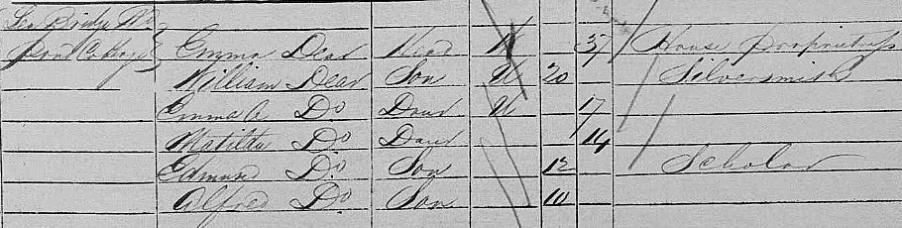 Lea Bridge Rd
Cottage Emma Dear Head 37 House Proprietress
William Dear Son U 20 Silversmith
Emma A Do Daur U 17
Matilda Do Daur 14
Edmund Do Son 12 Scholar
Alfred Do Son 10